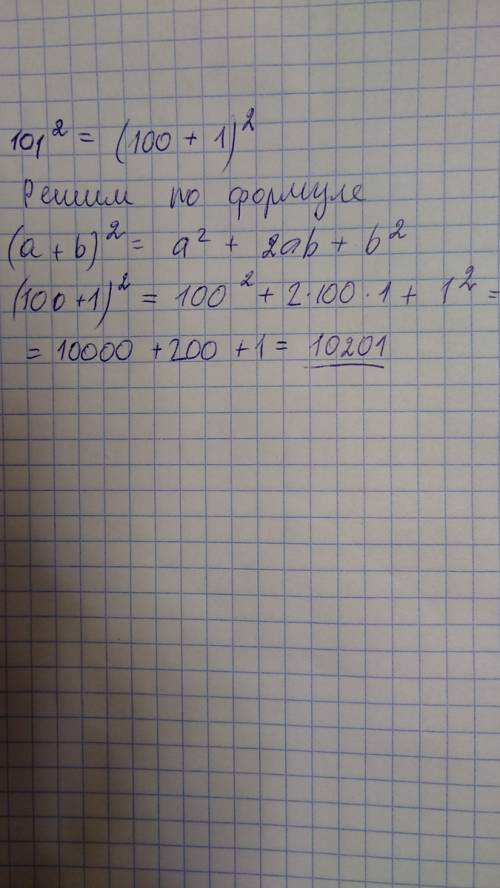 101² = (100 + 1)²
Решим по формуле
(a + b)² = a² + 2ab + b²
(100 + 1)² = 100² + 2·100·1 + 1² =
= 10000 + 200 + 1 = 10201